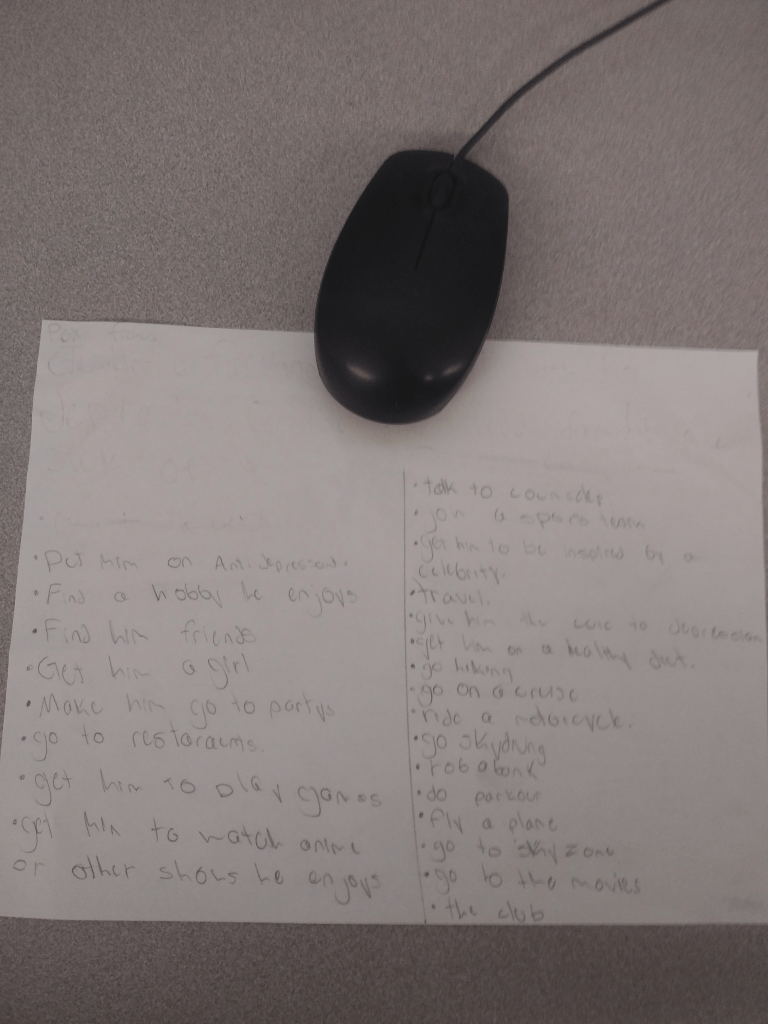 • Put him on Antidepressant.
• Find a hobby he enjoys
• Find him friends
• Get him a girl
• Make him go to partys
• go to restaraunts.
• get him to play games
• get him to watch anime
or other shows he enjoys
• talk to counsler
• join a sports team
• get him to be inspired by a
celebrity.
• travel.
• give him the cure to depression
• get him on a healthy diet.
• go hiking
• go on a cruse
• ride a motorcycle.
• go skydiving
• rob a bank
• do parkour
• fly a plane
• go to skyzone
• go to the movies
• the club